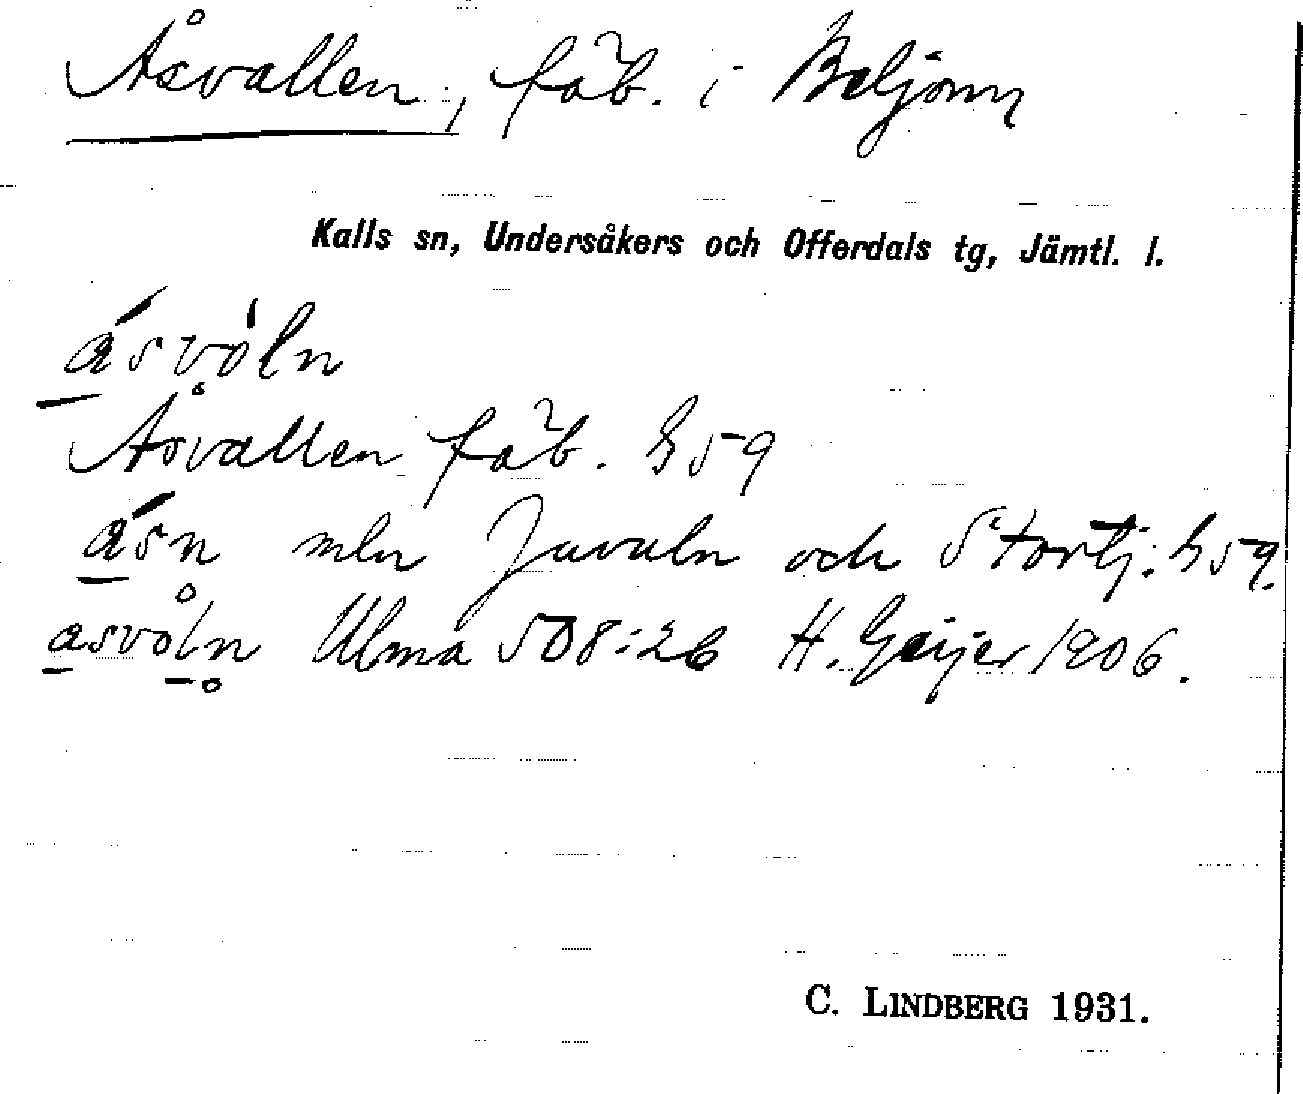 Åsvallen, fäb. i Beljom
Kalls sn, Undersåkers och Offerdals tg, Jämtl. l.
ásvòln
Åsvallen fäb. h 59
ásn mln Juvuln och Stortj. h 59.
asvåln Ulma 508:26 H. Geijer 1906.
C. LINDBERG 1931.